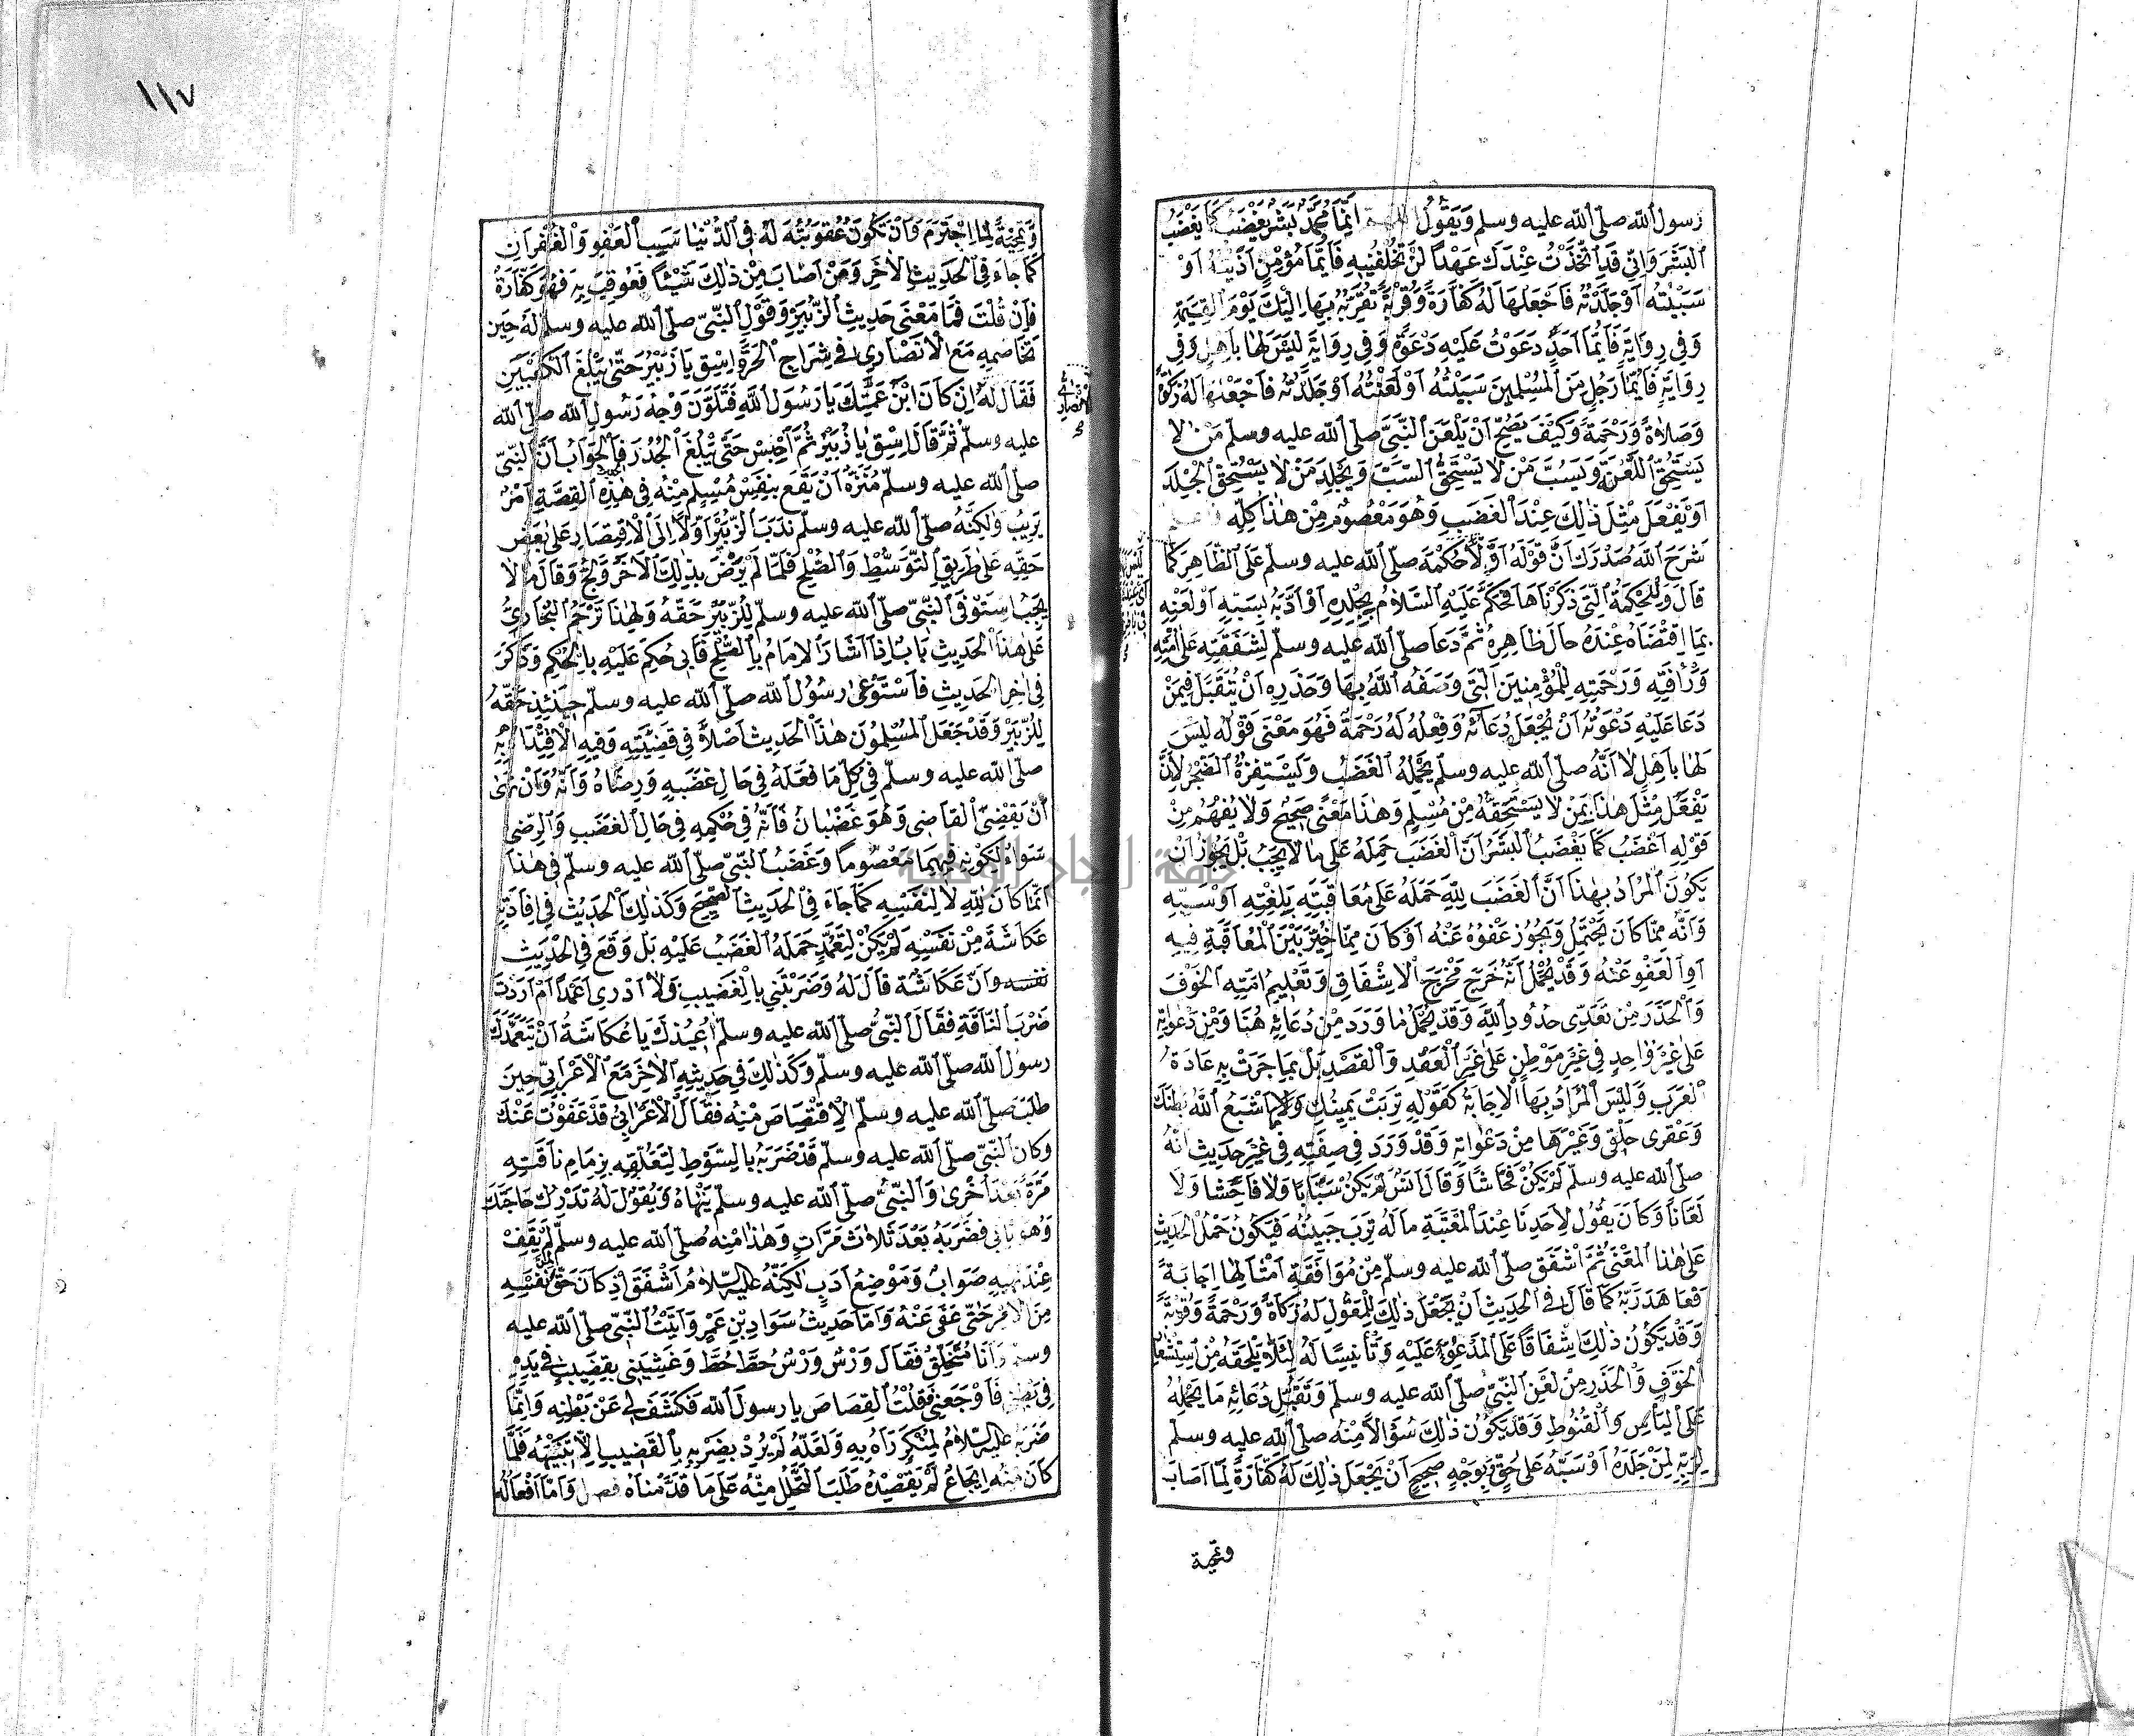 رسول الله صلى الله عليه وسلم ويقول اللهم انما محمد بشر يغضب كما يغضب
البشر واني قد اتخذت عندك عهدا لن تخلفنيه فايما مؤمن اذيته او
سببته او جلدته فاجعلها له كفارة وقربة تقربه بها اليك يوم القيمة
وفي رواية فايما احد دعوت عليه دعوة وفي رواية ليس لها باهل وفي
رواية فايما رجل من المسلمين سببته او لعنته او جلدته فاجعلها له زكوة
وصلاة ورحمة وكيف يصح ان يلعن النبي صلى الله عليه وسلم من لا
يستحق اللعنة ويسب من لا يستحق السب ويجلد من لا يستحق الجلد
او يفعل مثل ذلك عند الغضب وهو معصوم من هذا كله فاعلم
شرح الله صدرك ان قوله اولا حكمه صلى الله عليه وسلم على الظاهر كما
قال وللحكمة التي ذكرناها فحكم عليه السلام بجلده او ادبه بسبه او لعنه
بما اقتضاه عنده حال ظاهره ثم دعا صلى الله عليه وسلم لشفقته على امته
ورأفته ورحمته للمؤمنين التي وصفه الله بها وحذره ان يتقبل فيمن
دعا عليه دعوته ان يجعل دعائه وفعله له رحمة فهو معنى قوله ليس
لها باهل لا انه صلى الله عليه وسلم يحمله الغضب ويستفزه الضجر لان
يفعل مثل هذا بمن لا يستحقه من مسلم وهذا معنى صحيح ولا يفهم من
قوله اغضب كما يغضب البشر ان الغضب حمله على ما لا يجب بل يجوز ان
يكون المراد بهذا ان الغضب لله حمله على معاقبته بلعنته او سبه
وانه مما كان يحتمل ويجوز عفوه عنه او كان مما خير بين المعاقبة فيه
او العفو عنه وقد يحمل انه خرج مخرج الاشفاق وتعليم امته الخوف
والحذر من تعدى حدود الله وقد يحمل ما ورد من دعائه هنا ومن دعواته
على غير واحد في غير موطن على غير العقد والقصد بل بما جرت به عادة
العرب وليس المراد بها الاجابة كقوله تربت يمينك ولا اشبع الله بطنك
وعقرى حلقى وغيرها من دعواته وقد ورد في صفته في غير حديث انه
صلى الله عليه وسلم لم يكن فحاشا وقال انس لم يكن سبابا ولا فاحشا ولا
لعانا وكان يقول لاحدنا عند المعتبة ما له ترب جبينه فيكون حمل الحديث
على هذا المعنى ثم اشفق صلى الله عليه وسلم من موافقة امثالها اجابة
فعاهد ربه كما قال في الحديث ان يجعل ذلك للمقول له زكاة ورحمة وقربة
وقد يكون ذلك اشفاقا على المدعو عليه وتأنيسا له لئلا يلحقه من استشعار
الخوف والحذر من لعن النبي صلى الله عليه وسلم وتقبل دعائه ما يحمله
على اليأس والقنوط وقد يكون ذلك سؤالا منه صلى الله عليه وسلم
لربه لمن جلده او سبه على حق وبوجه صحيح ان يجعل ذلك له كفارة لما اصاب
وتمحية
١١٧
وتمحية لما اجترم وان تكون عقوبته له في الدنيا سبب العفو والغفران
كما جاء في الحديث الاخر ومن اصاب من ذلك شيئا فعوقب به فهو كفارة
فان قلت فما معنى حديث الزبير وقول النبي صلى الله عليه وسلم له حين
تخاصمه مع الانصاري في شراج الحرة اسق يا زبير حتى يبلغ الكعبين
فقال له ان كان ابن عمتك يا رسول الله فتلون وجه رسول الله صلى الله
عليه وسلم ثم قال اسق يا زبير ثم احبس حتى يبلغ الجدر فالجواب ان النبي
صلى الله عليه وسلم منزه ان يقع بنفس مسلم منه في هذه القصة امر
يريب ولكنه صلى الله عليه وسلم ندب الزبير اولا الى الاقتصار على بعض
حقه على طريق التوسط والصلح فلما لم يرض بذلك الاخر ولج وقال ما لا
يجب استوفى النبي صلى الله عليه وسلم للزبير حقه ولهذا ترجم البخاري
على هذا الحديث باب اذا اشار الامام بالصلح فابى حكم عليه بالحكم وذكر
في اخر الحديث فاستوعى رسول الله صلى الله عليه وسلم حينئذ حقه
للزبير وقد جعل المسلمون هذا الحديث اصلا في قضيته وفيه الاقتداء به
صلى الله عليه وسلم في كل ما فعله في حال غضبه ورضاه وانه وان نهى
ان يقضي القاضي وهو غضبان فانه في حكمه في حال الغضب والرضى
سواء لكونه فيهما معصوما وغضب النبي صلى الله عليه وسلم في هذا
انما كان لله لا لنفسه كما جاء في الحديث الصحيح وكذلك الحديث في اقادته
عكاشة من نفسه لم يكن لتعمد حمله الغضب عليه بل وقع في الحديث
نفسه وان عكاشة قال له وضربتني بالقضيب ولا ادري اعمدا ام اردت
ضرب الناقة فقال النبي صلى الله عليه وسلم اعيذك يا عكاشة ان يتعمدك
رسول الله صلى الله عليه وسلم وكذلك في حديثه الاخر مع الاعرابي حين
طلب صلى الله عليه وسلم الاقتصاص منه فقال الاعرابي قد عفوت عنك
وكان النبي صلى الله عليه وسلم قد ضربه بالسوط لتعلقه بزمام ناقته
مرة بعد اخرى والنبي صلى الله عليه وسلم ينهاه ويقول له تدرك حاجتك
وهو يأبى فضربه بعد ثلاث مرات وهذا منه صلى الله عليه وسلم لم يقف
عند نهيه صواب وموضع ادب لكنه عليه السلام اشفق اذ كان حق نفسه
من الامر حتى عفى عنه واما حديث سواد بن عمر واتيت النبي صلى الله عليه
وسلم وانا متخلق فقال ورس ورس حط حط وغشيني بقضيب في يده
في بطني فاوجعني فقلت القصاص يا رسول الله فكشف لي عن بطنه وانما
ضربه عليه السلام لمنكر راه به ولعله لم يرد بضربه بالقضيب الا تنبيهه فلما
كان منه ايجاع لم يقصده طلب التحلل منه على ما قدمناه فصل واما افعاله
جامعة النجاح الوطنية